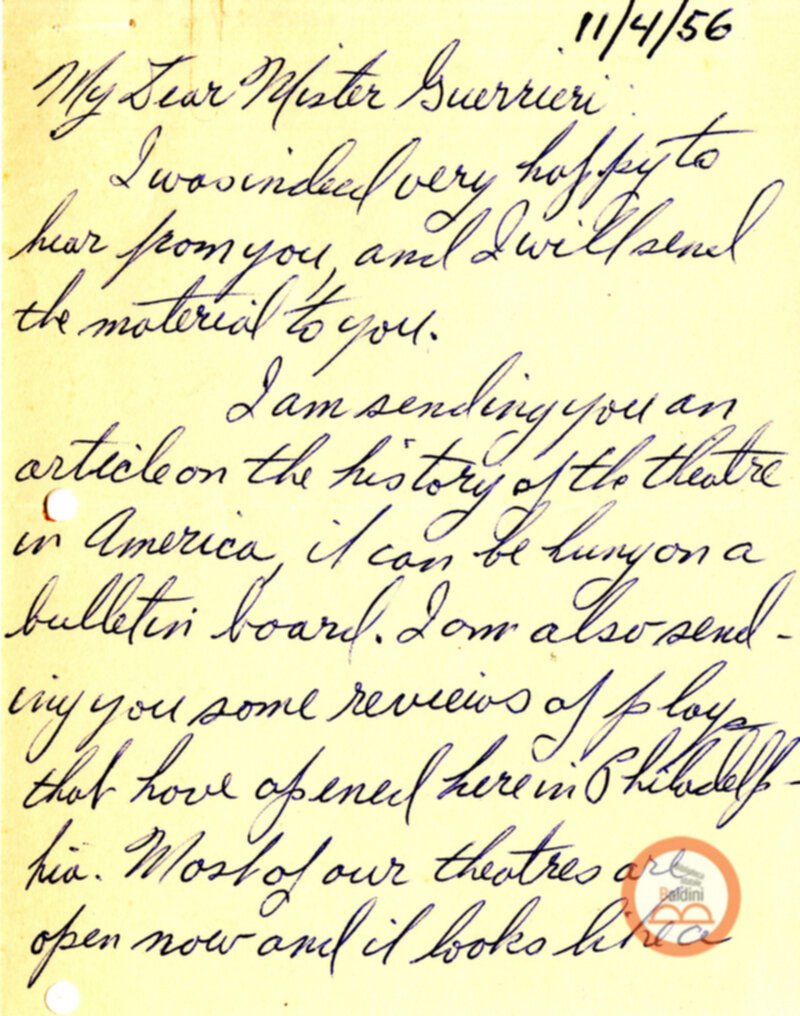 11/4/56
My Dear Mister Guerrieri:
I was indeed very happy to
hear from you, and I will send
the material to you.
I am sending you an
article on the history of the theatre
in America, it can be hung on a
bulletin board. I am also send-
ing you some reviews of plays
that have opened here in Philadelp-
hia. Most of our theatres are
open now and it looks like a
Biblioteca
Statale
Baldini